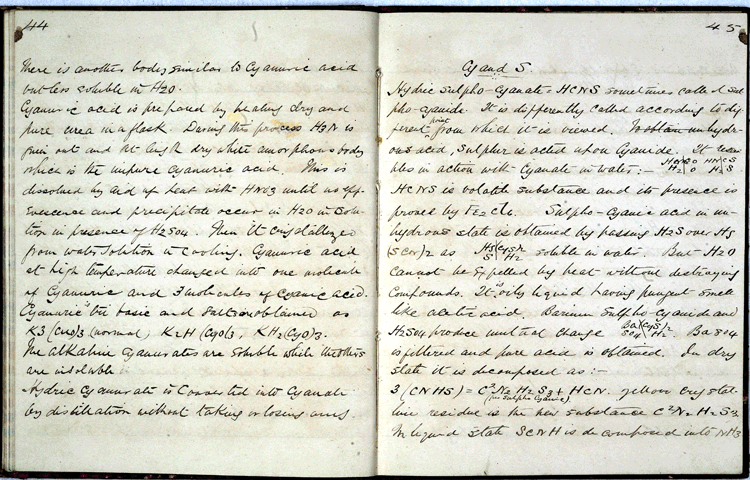 44
There is another body similar to Cyanuric acid
but less soluble in H2O.
Cyanuric acid is prepared by heating dry and
pure urea in a flask. During this process H3N is
given out and at length dry white amorphous body
which is the impure cyanuric acid. This is
dissolved by aid of heat with HNO3 until no eff-
ervescence and precipitate occur in H2O in solu-
tion in presence of H2SO4. Then it crystallizes
from water solution in cooling. Cyanuric acid
at high temperature changed into one molecule
of Cyanuric and 3 molecules of cyanic acid.
Cyanuric is tri basic and salts obtained as
K3 (CyO)3 (normal), K2H (CyO)3, KH2(CyO)3.
The alkaline Cyanurates are soluble while the others
are insoluble.
Hydric Cyanurate is converted into Cyanate
by distillation without taking or losing any.
45
Cy and S.
Hydric Sulpho-Cyanate = HCNS sometimes called Sul
pho-cyanide. It is differently called according to dif
ferent point from which it is viewed. To obtain unhydr-
ous acid, Sulphur is acted upon Cyanide. It resem
ples in action with Cyanate in water:— HCNSO HNCS
H2 O H2S
HCNS is volatile substance and its presence is
proved by Fe2Cl6. Sulpho-Cyanic acid in un-
hydrous state is obtained by passing H2S over Hg
(SCN)2 as Hg(CyS)2
S H2 soluble in water. But H2O
Cannot be Expelled by heat without destroying
Compounds. It is oily liquid having pungent smell
like acetic acid. Barium Sulpho Cyanide and
H2SO4 produce mutual change Ba(CyS)2
SO4 H2. BaSO4
is filtered and pure acid is obtained. In dry
state it is decomposed as:—
3 (CNHS) = C2N2H2S3 + HCN. yellow crystal-
(per Sulpho Cyanic)
line residue is the new substance C2N2H2S3
In liquid state SCNH is decomposed into NH3